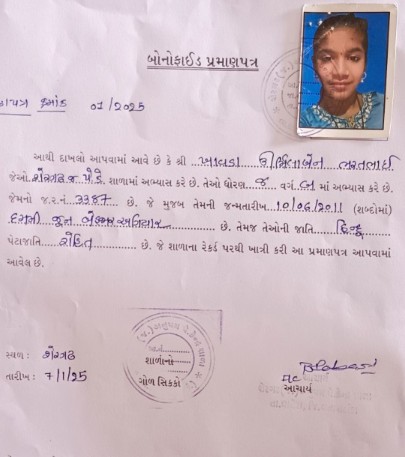 બોનોફાઈડ પ્રમાણપત્ર
ક્રમાંક 01/2025
આથી દાખલો આપવામાં આવે છે કે શ્રી ચાવડા ઉર્મિલાબેન ભરતભાઈ
જેઓ પે.કે. શાળામાં અભ્યાસ કરે છે. તેઓ ધોરણ વર્ગ બ માં અભ્યાસ કરે છે.
જેમનો જ.ર.નં. 3387 છે. જે મુજબ તેમની જન્મતારીખ 10/06/2011 (શબ્દોમાં)
દસમી જુન બે હજાર અગિયાર છે. તેમજ તેઓની જાતિ હિન્દુ
પેટાજાતિ રોહિત છે. જે શાળાના રેકર્ડ પરથી ખાત્રી કરી આ પ્રમાણપત્ર આપવામાં
આવેલ છે.
શાળાનો
ગોળ સિક્કો
સ્થળ :
તારીખ : 7/1/25
આચાર્ય